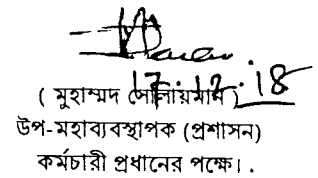 17.12.18
( মুহাম্মদ সোলায়মান )
উপ-মহাব্যবস্থাপক (প্রশাসন)
কর্মচারী প্রধানের পক্ষে।.